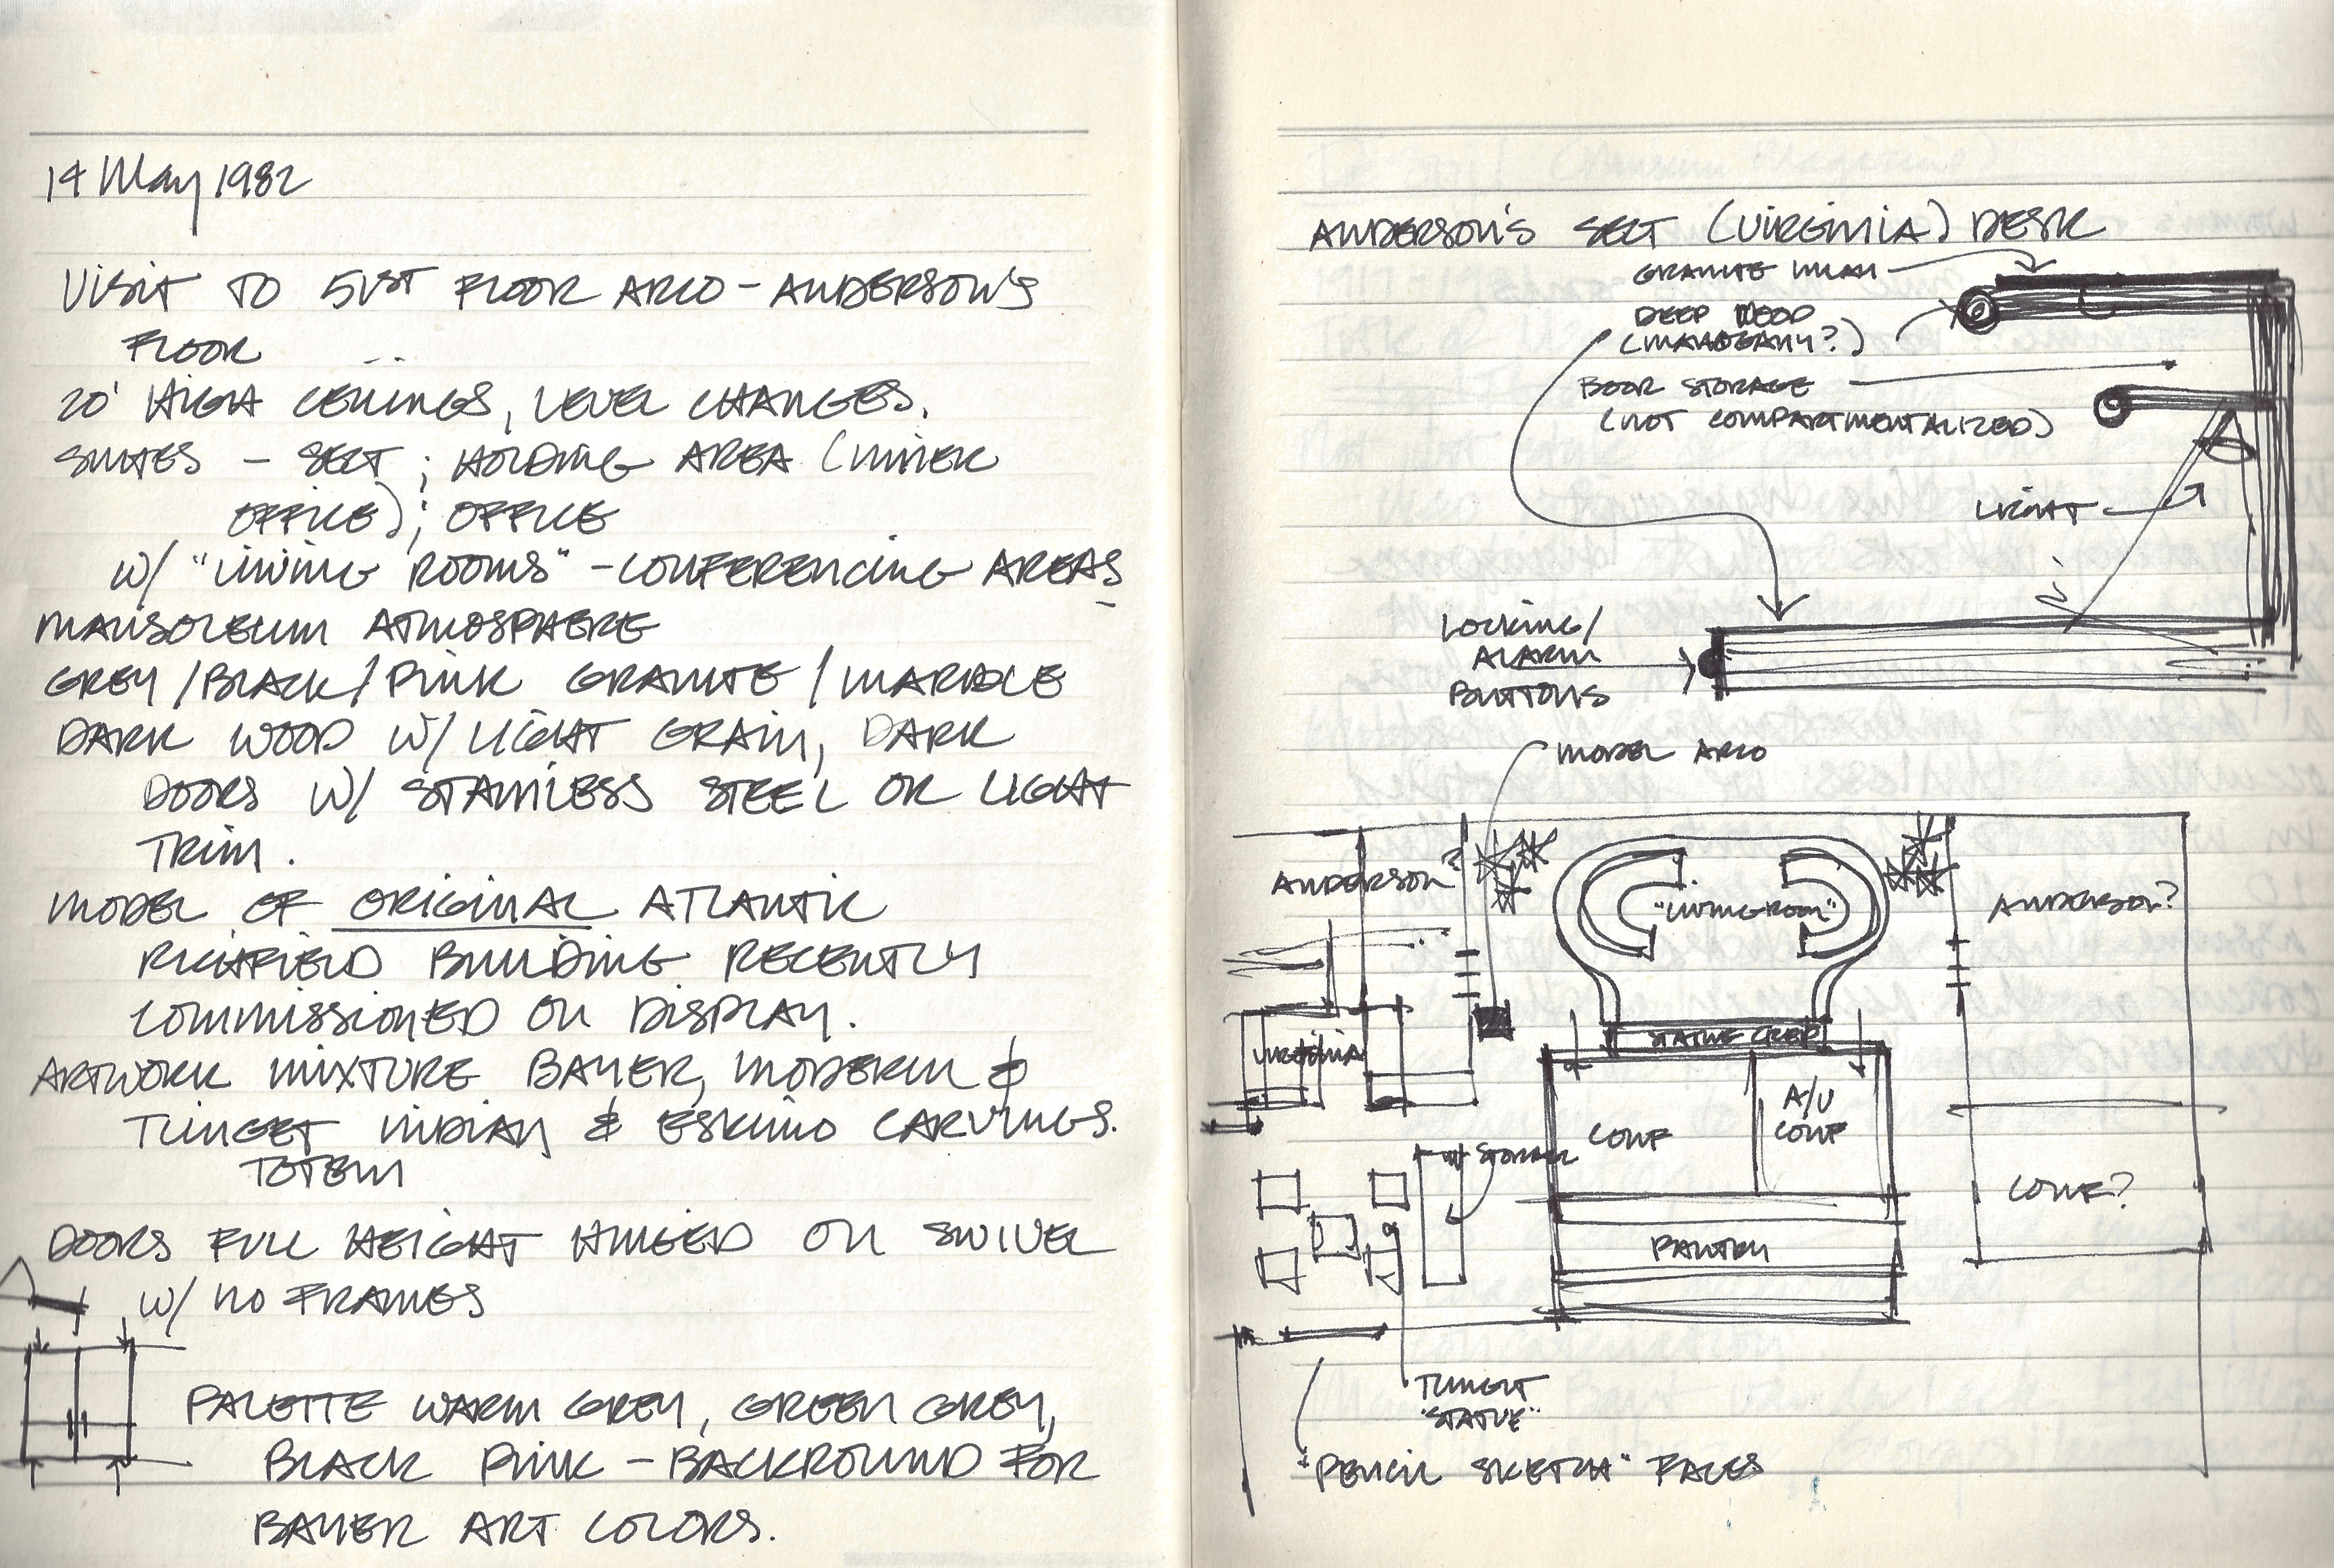 14 May 1982
VISIT TO 51ST FLOOR ARCO - ANDERSON'S
FLOOR
20' HIGH CEILINGS, LEVEL CHANGES.
SUITES - SECT; HOLDING AREA (INNER
OFFICE); OFFICE
W/ "LIVING ROOMS" - CONFERENCING AREAS
MAUSOLEUM ATMOSPHERE
GREY/BLACK/PINK GRANITE/MARBLE
DARK WOOD W/ LIGHT GRAIN, DARK
DOORS W/ STAINLESS STEEL OR LIGHT
TRIM.
MODEL OF ORIGINAL ATLANTIC
RICHFIELD BUILDING RECENTLY
COMMISSIONED ON DISPLAY.
ARTWORK MIXTURE BAYER, MODERN &
TLINGET INDIAN & ESKIMO CARVINGS.
TOTEM
DOORS FULL HEIGHT HINGED ON SWIVEL
W/ NO FRAMES
PALETTE WARM GREY, GREEN GREY,
BLACK PINK - BACKROUND FOR
BAYER ART COLORS.
ANDERSON'S SECT (VIRGINIA) DESK
GRANITE INLAY
DEEP WOOD
(MAHOGANY?)
BOOK STORAGE
(NOT COMPARTMENTALIZED)
LIGHT
LOCKING/
ALARM
BUTTONS
MODEL ARCO
ANDERSON?
"LIVINGROOM"
ANDERSON?
VIRGINIA
STATUE
A/V
CONF
CONF
STORAGE
CONF?
PANTRY
TLINGIT
"STATUE"
"PENCIL SKETCH" FACES